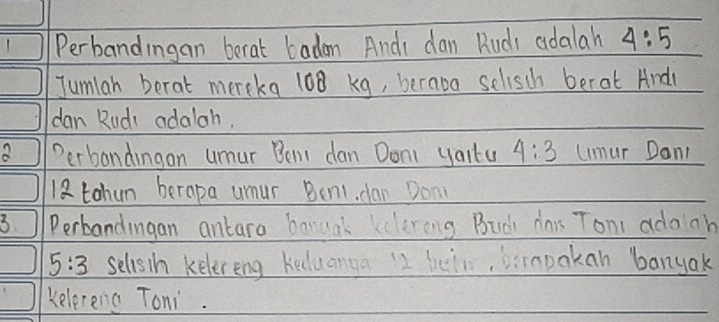 1 Perbandingan berat badan Andi dan Rudi adalah 4:5
Jumlah berat mereka 108 kg, berapa selisih berat Andi
dan Rudi adalah.
2 Perbandingan umur Beni dan Doni yaitu 4:3 umur Doni
12 tahun berapa umur Beni.dan Doni
3. Perbandingan antara banyak kelereng Budi dan Toni adalah
5:3 selisih kelereng keduanya 12 , berapakah banyak
kelereng Toni.